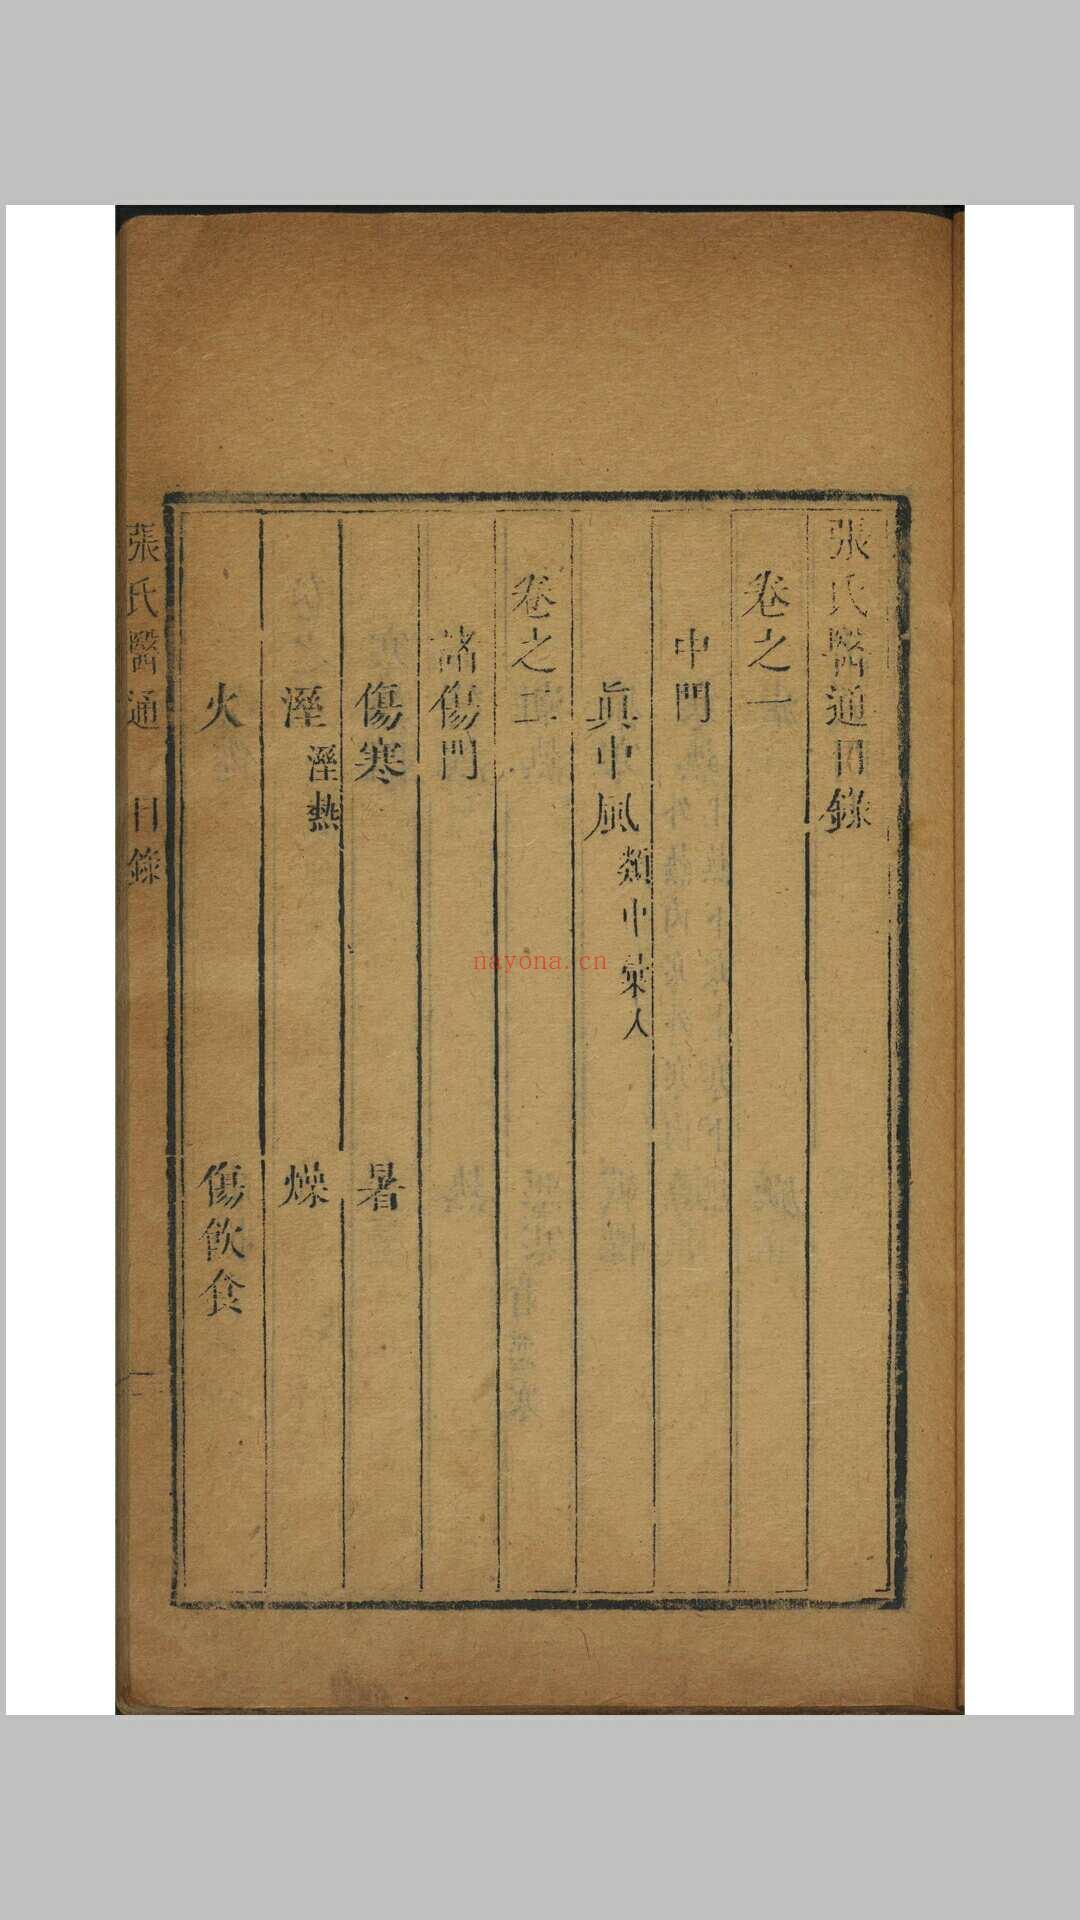 張氏醫通目錄
卷之一
中門
眞中風 類中彙人
卷之二
諸傷門
傷寒 暑
溼 溼熱 燥
火 傷飲食
張氏醫通 目錄 一
nayona.cn